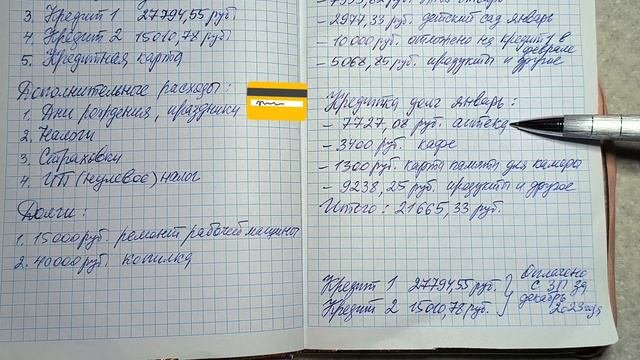 3. Кредит 1 27794,55 руб.
4. Кредит 2 15010,78 руб.
5. Кредитная карта
Дополнительные расходы:
1. Дни рождения, праздники
2. Налоги
3. Страховки
4. ИП (нулевое) налог
Долги:
1. 15000 руб. ремонт рабочей машины
2. 40000 руб. копилка
- 2977,33 руб. детский сад январь
- 10000 руб. отложено на кредит 1 в
феврале
- 5068,85 руб. продукты и другое
Кредитка долг январь:
- 7727,08 руб. аптека
- 3400 руб. кафе
- 1300 руб. карта памяти для камеры
- 9238,25 руб. продукты и другое
Итого: 21665,33 руб.
Кредит 1 27794,55 руб.
Кредит 2 15010,78 руб.
Оплачено
с ЗП за
декабрь
2023 года